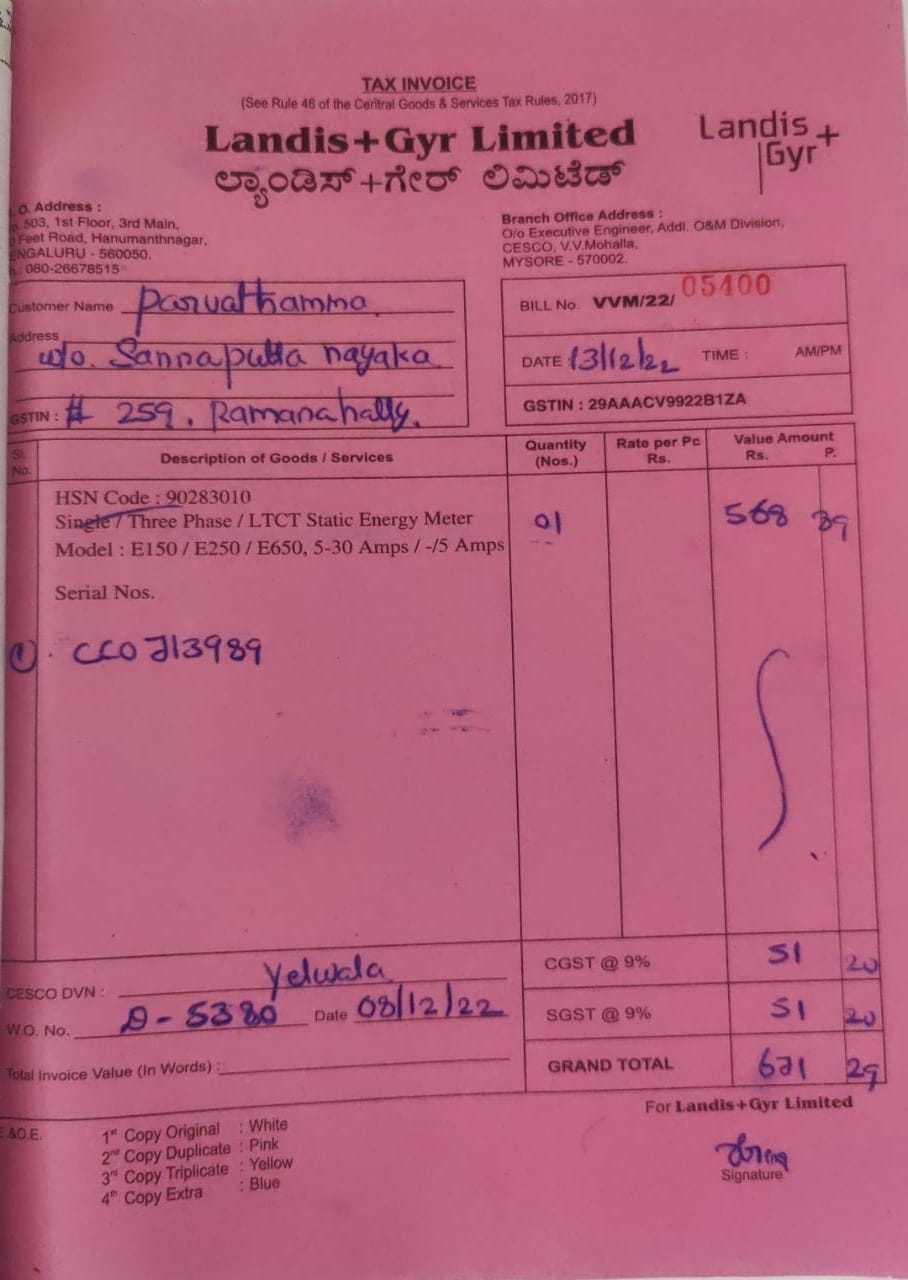 TAX INVOICE
(See Rule 46 of the Central Goods & Services Tax Rules, 2017)
Landis+Gyr Limited
ಲ್ಯಾಂಡಿಸ್+ಗೇರ್ ಲಿಮಿಟೆಡ್
Landis
Gyr+
.O. Address :
503, 1st Floor, 3rd Main,
Feet Road, Hanumanthnagar,
ENGALURU - 560050.
: 080-26678515
Branch Office Address :
O/o Executive Engineer, Addl. O&M Division,
CESCO, V.V.Mohalla,
MYSORE - 570002.
Customer Name Parvathamma
Address
w/o. Sannaputta nayaka
GSTIN : # 259, Ramanahally.
BILL No. VVM/22/ 05400
DATE 13/12/22 TIME : AM/PM
GSTIN : 29AAACV9922B1ZA
Sl. No. Description of Goods / Services Quantity (Nos.) Rate per Pc Rs. Value Amount Rs. P.
HSN Code : 90283010
Single / Three Phase / LTCT Static Energy Meter 01 568 89
Model : E150 / E250 / E650, 5-30 Amps / -/5 Amps
Serial Nos.
1 CCO713989
CGST @ 9% 51 20
SGST @ 9% 51 20
GRAND TOTAL 671 29
CESCO DVN : Yelwala
W.O. No. D-5380 Date 08/12/22
Total Invoice Value (In Words) :
For Landis+Gyr Limited
Signature
E.&O.E.
1st Copy Original : White
2nd Copy Duplicate : Pink
3rd Copy Triplicate : Yellow
4th Copy Extra : Blue